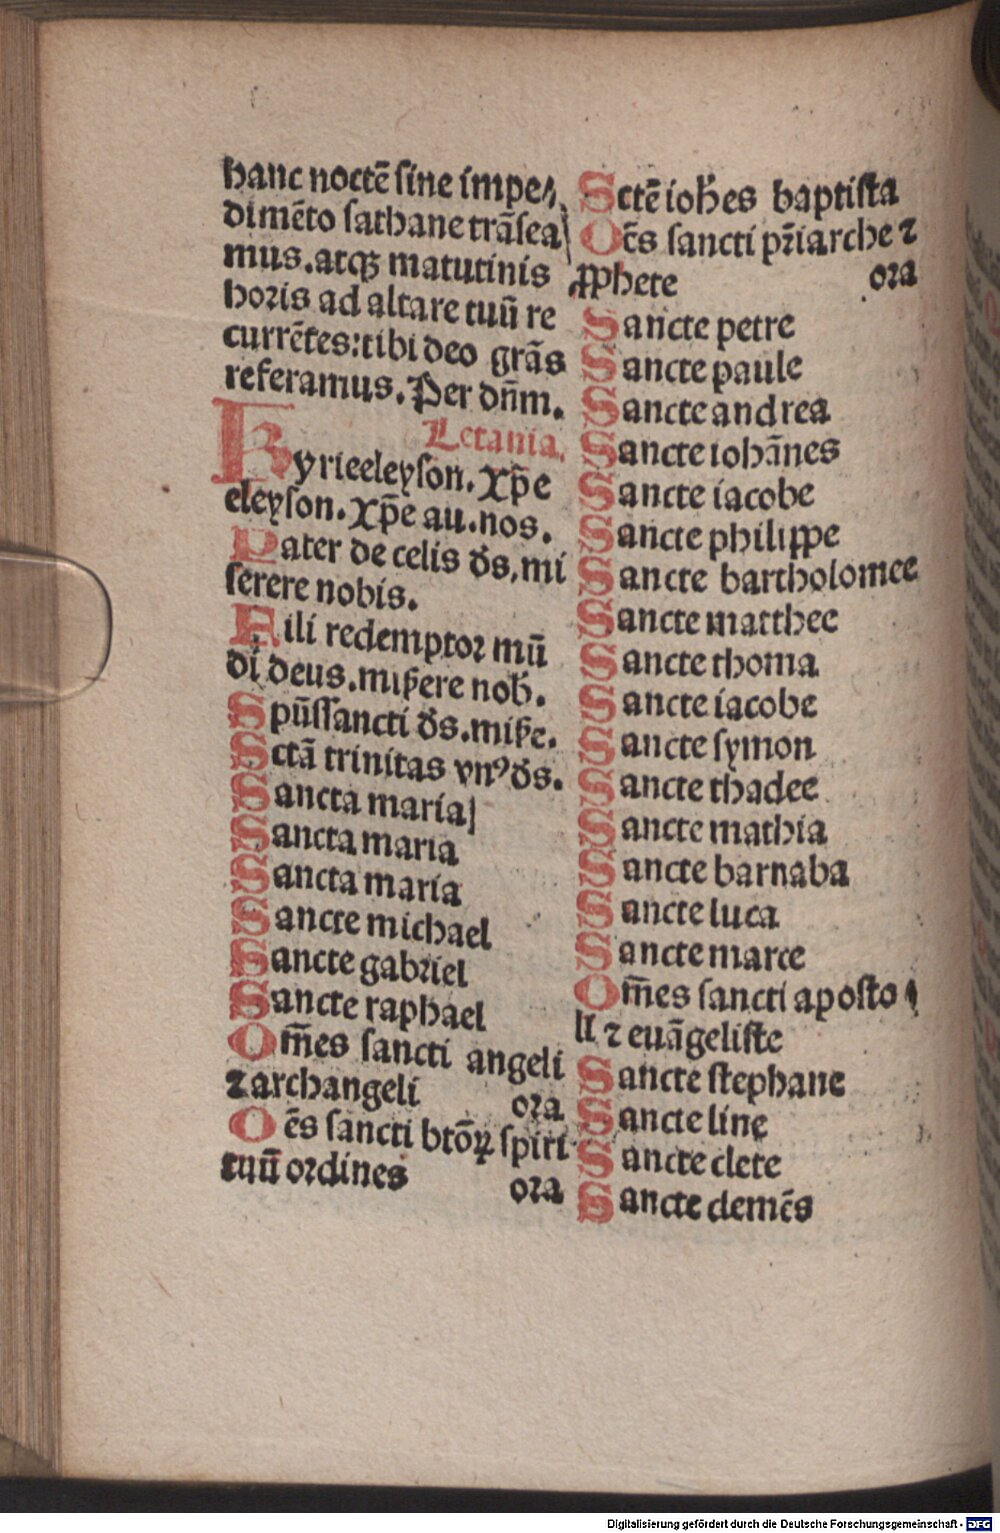 hanc noctē sine impe⸗
dimēto sathane trāsea
mus. atqꝫ matutinis
horis ad altare tuū re
currētes: tibi deo grās
referamus. Per dn̄m.
Letania.
Kyrieeleyson. Xp̄e
eleyson. Xp̄e au. nos.
Pater de celis ds̄, mi
serere nobis.
Fili redemptor mū
di deus. mis̄ere nob̄.
Spūssancti ds̄. mis̄e.
Sctā trinitas vnꝰ ds̄.
Sancta maria
Sancta maria
Sancta maria
Sancte michael
Sancte gabriel
Sancte raphael
Om̄es sancti angeli
⁊ archangeli ora
Oēs sancti btōꝝ spiri
tuū ordines ora
Sctē ioh̄es baptista
Oēs sancti pr̄iarche ⁊
ꝓphete ora
Sancte petre
Sancte paule
Sancte andrea
Sancte iohānes
Sancte iacobe
Sancte philippe
Sancte bartholomee
Sancte matthee
Sancte thoma
Sancte iacobe
Sancte symon
Sancte thadee
Sancte mathia
Sancte barnaba
Sancte luca
Sancte marce
Om̄es sancti aposto
li ⁊ euāgeliste
Sancte stephane
Sancte line
Sancte clete
Sancte clemēs
Digitalisierung gefördert durch die Deutsche Forschungsgemeinschaft - DFG